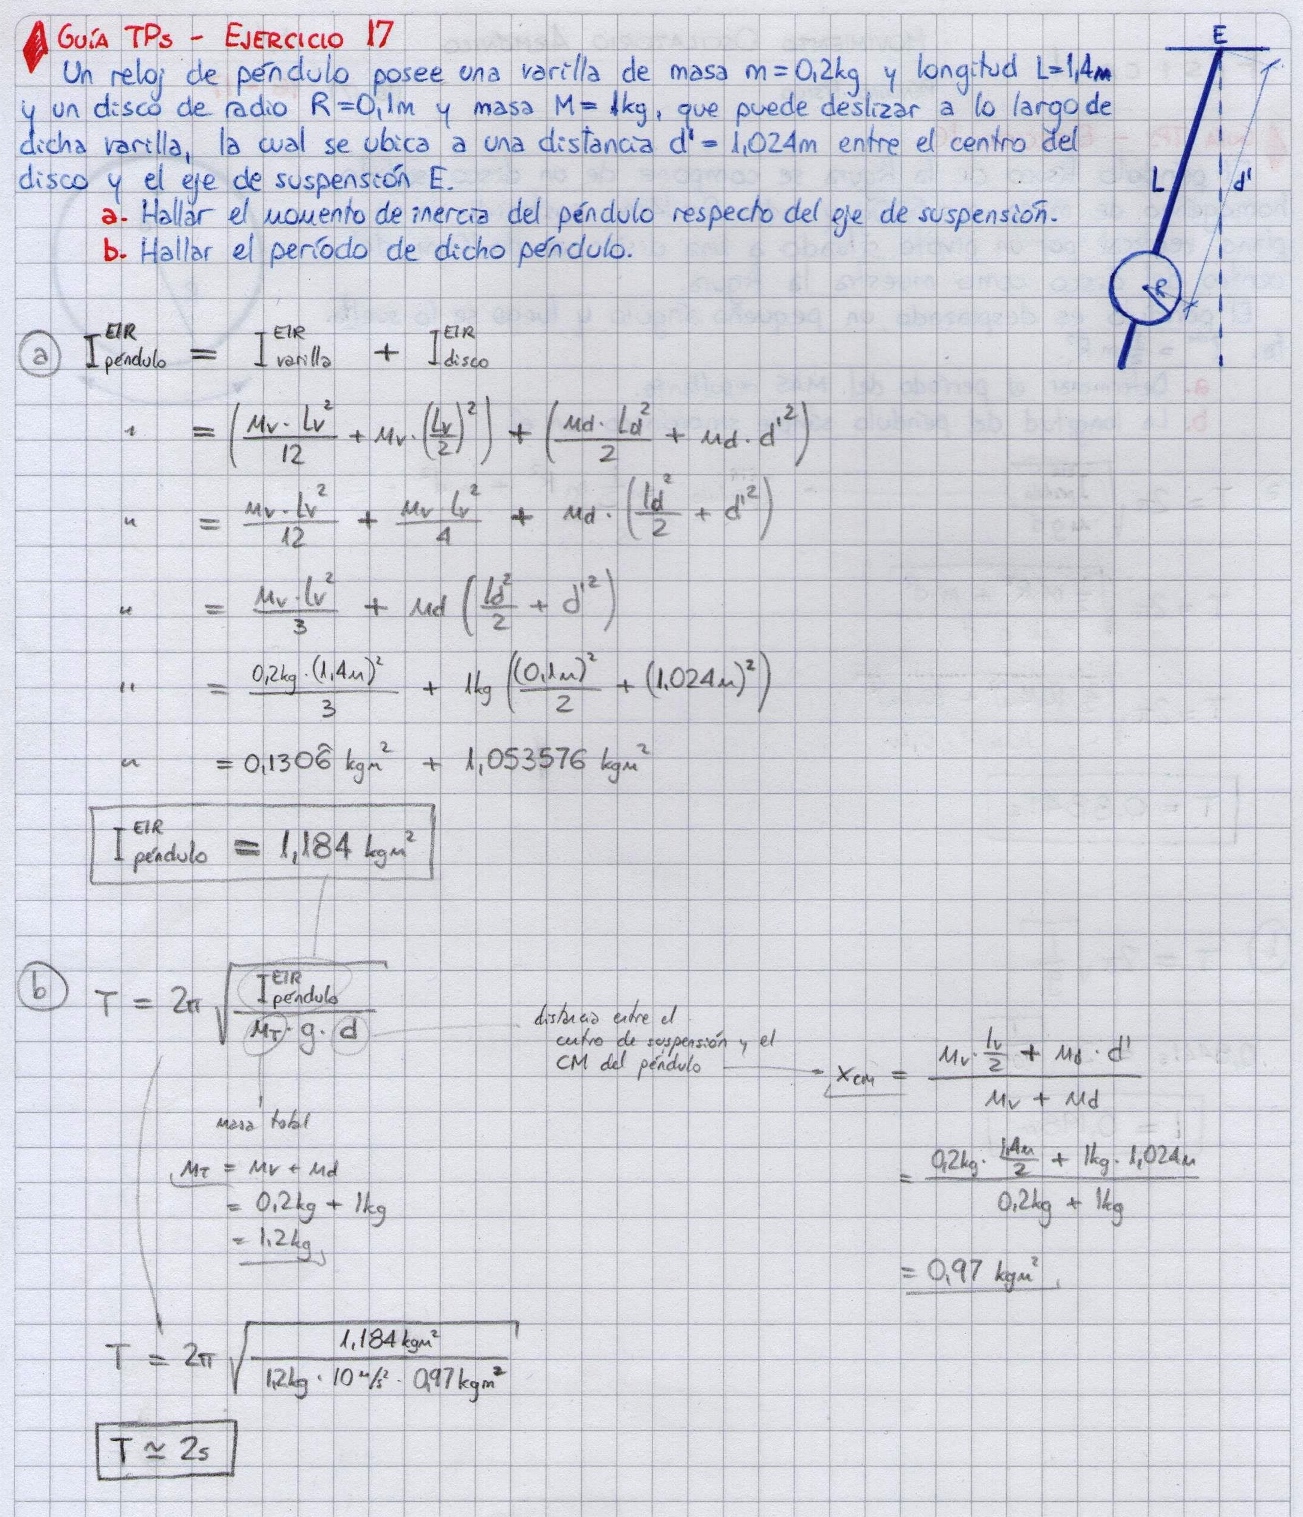 GUÍA TPs - EJERCICIO 17
Un reloj de péndulo posee una varilla de masa m=0,2kg y longitud L=1,4m
y un disco de radio R=0,1m y masa M=1kg, que puede deslizar a lo largo de
dicha varilla, la cual se ubica a una distancia d'=1,024m entre el centro del
disco y el eje de suspensión E.
a- Hallar el momento de inercia del péndulo respecto del eje de suspensión.
b. Hallar el período de dicho péndulo.
E
L
d'
R
a) I péndulo^EIR = I varilla^EIR + I disco^EIR
" = (Mv·Lv²/12 + Mv·(Lv/2)²) + (Md·Ld²/2 + Md·d'²)
" = Mv·Lv²/12 + Mv·Lv²/4 + Md·(Ld²/2 + d'²)
" = Mv·Lv²/3 + Md (Ld²/2 + d'²)
" = 0,2kg·(1,4m)²/3 + 1kg ((0,1m)²/2 + (1,024m)²)
" = 0,1306̂ kgm² + 1,053576 kgm²
I péndulo^EIR = 1,184 kgm²
b) T = 2π √(I péndulo^EIR / MT·g·d)
distancia entre el
centro de suspensión y el
CM del péndulo
Xcm = (Mv·Lv/2 + Md·d') / (Mv + Md)
= (0,2kg·1,4m/2 + 1kg·1,024m) / (0,2kg + 1kg)
= 0,97 kgm²
masa total
MT = Mv + Md
= 0,2kg + 1kg
= 1,2kg
T = 2π √(1,184kgm² / 1,2kg·10m/s²·0,97kgm²)
T ≃ 2s